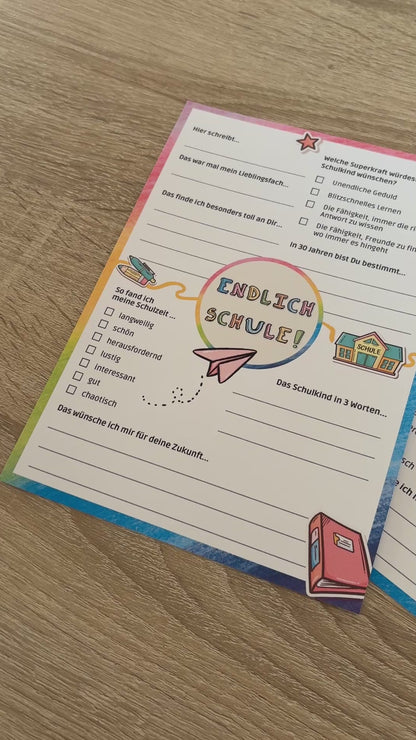 Hier schreibt...
Das war mal mein Lieblingsfach...
Das finde ich besonders toll an Dir...
Welche Superkraft würdes
Schulkind wünschen?
Unendliche Geduld
Blitzschnelles Lernen
Die Fähigkeit, immer die ri
Antwort zu wissen
Die Fähigkeit, Freunde zu fin
wo immer es hingeht
In 30 Jahren bist Du bestimmt...
ENDLICH
SCHULE!
SCHULE
So fand ich
meine Schulzeit...
langweilig
schön
herausfordernd
lustig
interessant
gut
chaotisch
Das Schulkind in 3 Worten...
Das wünsche ich mir für deine Zukunft...